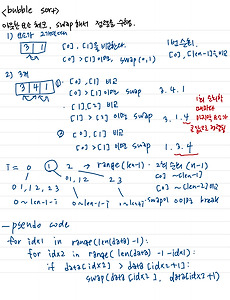 <bubble sort>
이웃한 요소 체크, swap 해서 정렬을 수행.
1) 변수가 2개라면
3 1
[0], [1]을 비교한다
[0] > [1] 이면 swap(0,1)
2) 3개
3 4 1
[0], [1] 비교
[0] > [1] 이면 swap
3. 4. 1
[1], [2] 비교
[1] > [2] 이면 swap
3. 1. 4
[0], [1] 비교
[0] > [1] 이면 swap
1. 3. 4
i = 0 1 2 → range(len-1)
[0] ~ [len-1]
01, 12, 23 01, 12
[0] ~ [len-2]
0 ~ len-1-i
swap이 break
—psendo code
for idx1 in range(len(data)-1):
for idx2 in range(len(data)-1-idx1):
if data[idx2] > data[idx2+1]:
swap(data[idx2], data[idx2+1])